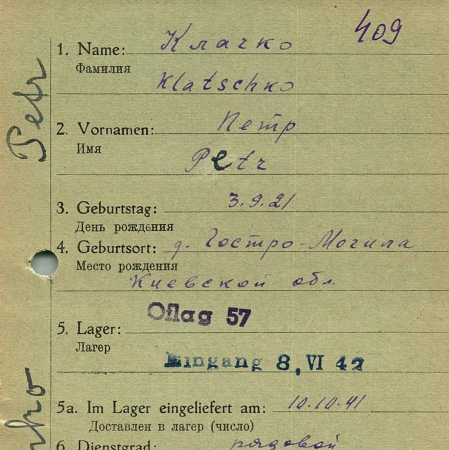 409
1. Name: Клачко
Фамилия
Klatschko
2. Vornamen: Петр
Имя
Petr
3. Geburtstag: 3.9.21
День рождения
4. Geburtsort: д. Гостро-Могила
Место рождения
Киевской обл.
Oflag 57
5. Lager:
Лагер
Eingang 8, VI 42
5a. Im Lager eingeliefert am: 10.10.41
Доставлен в лагер (число)
6. Dienstgrad: рядовой
Petr